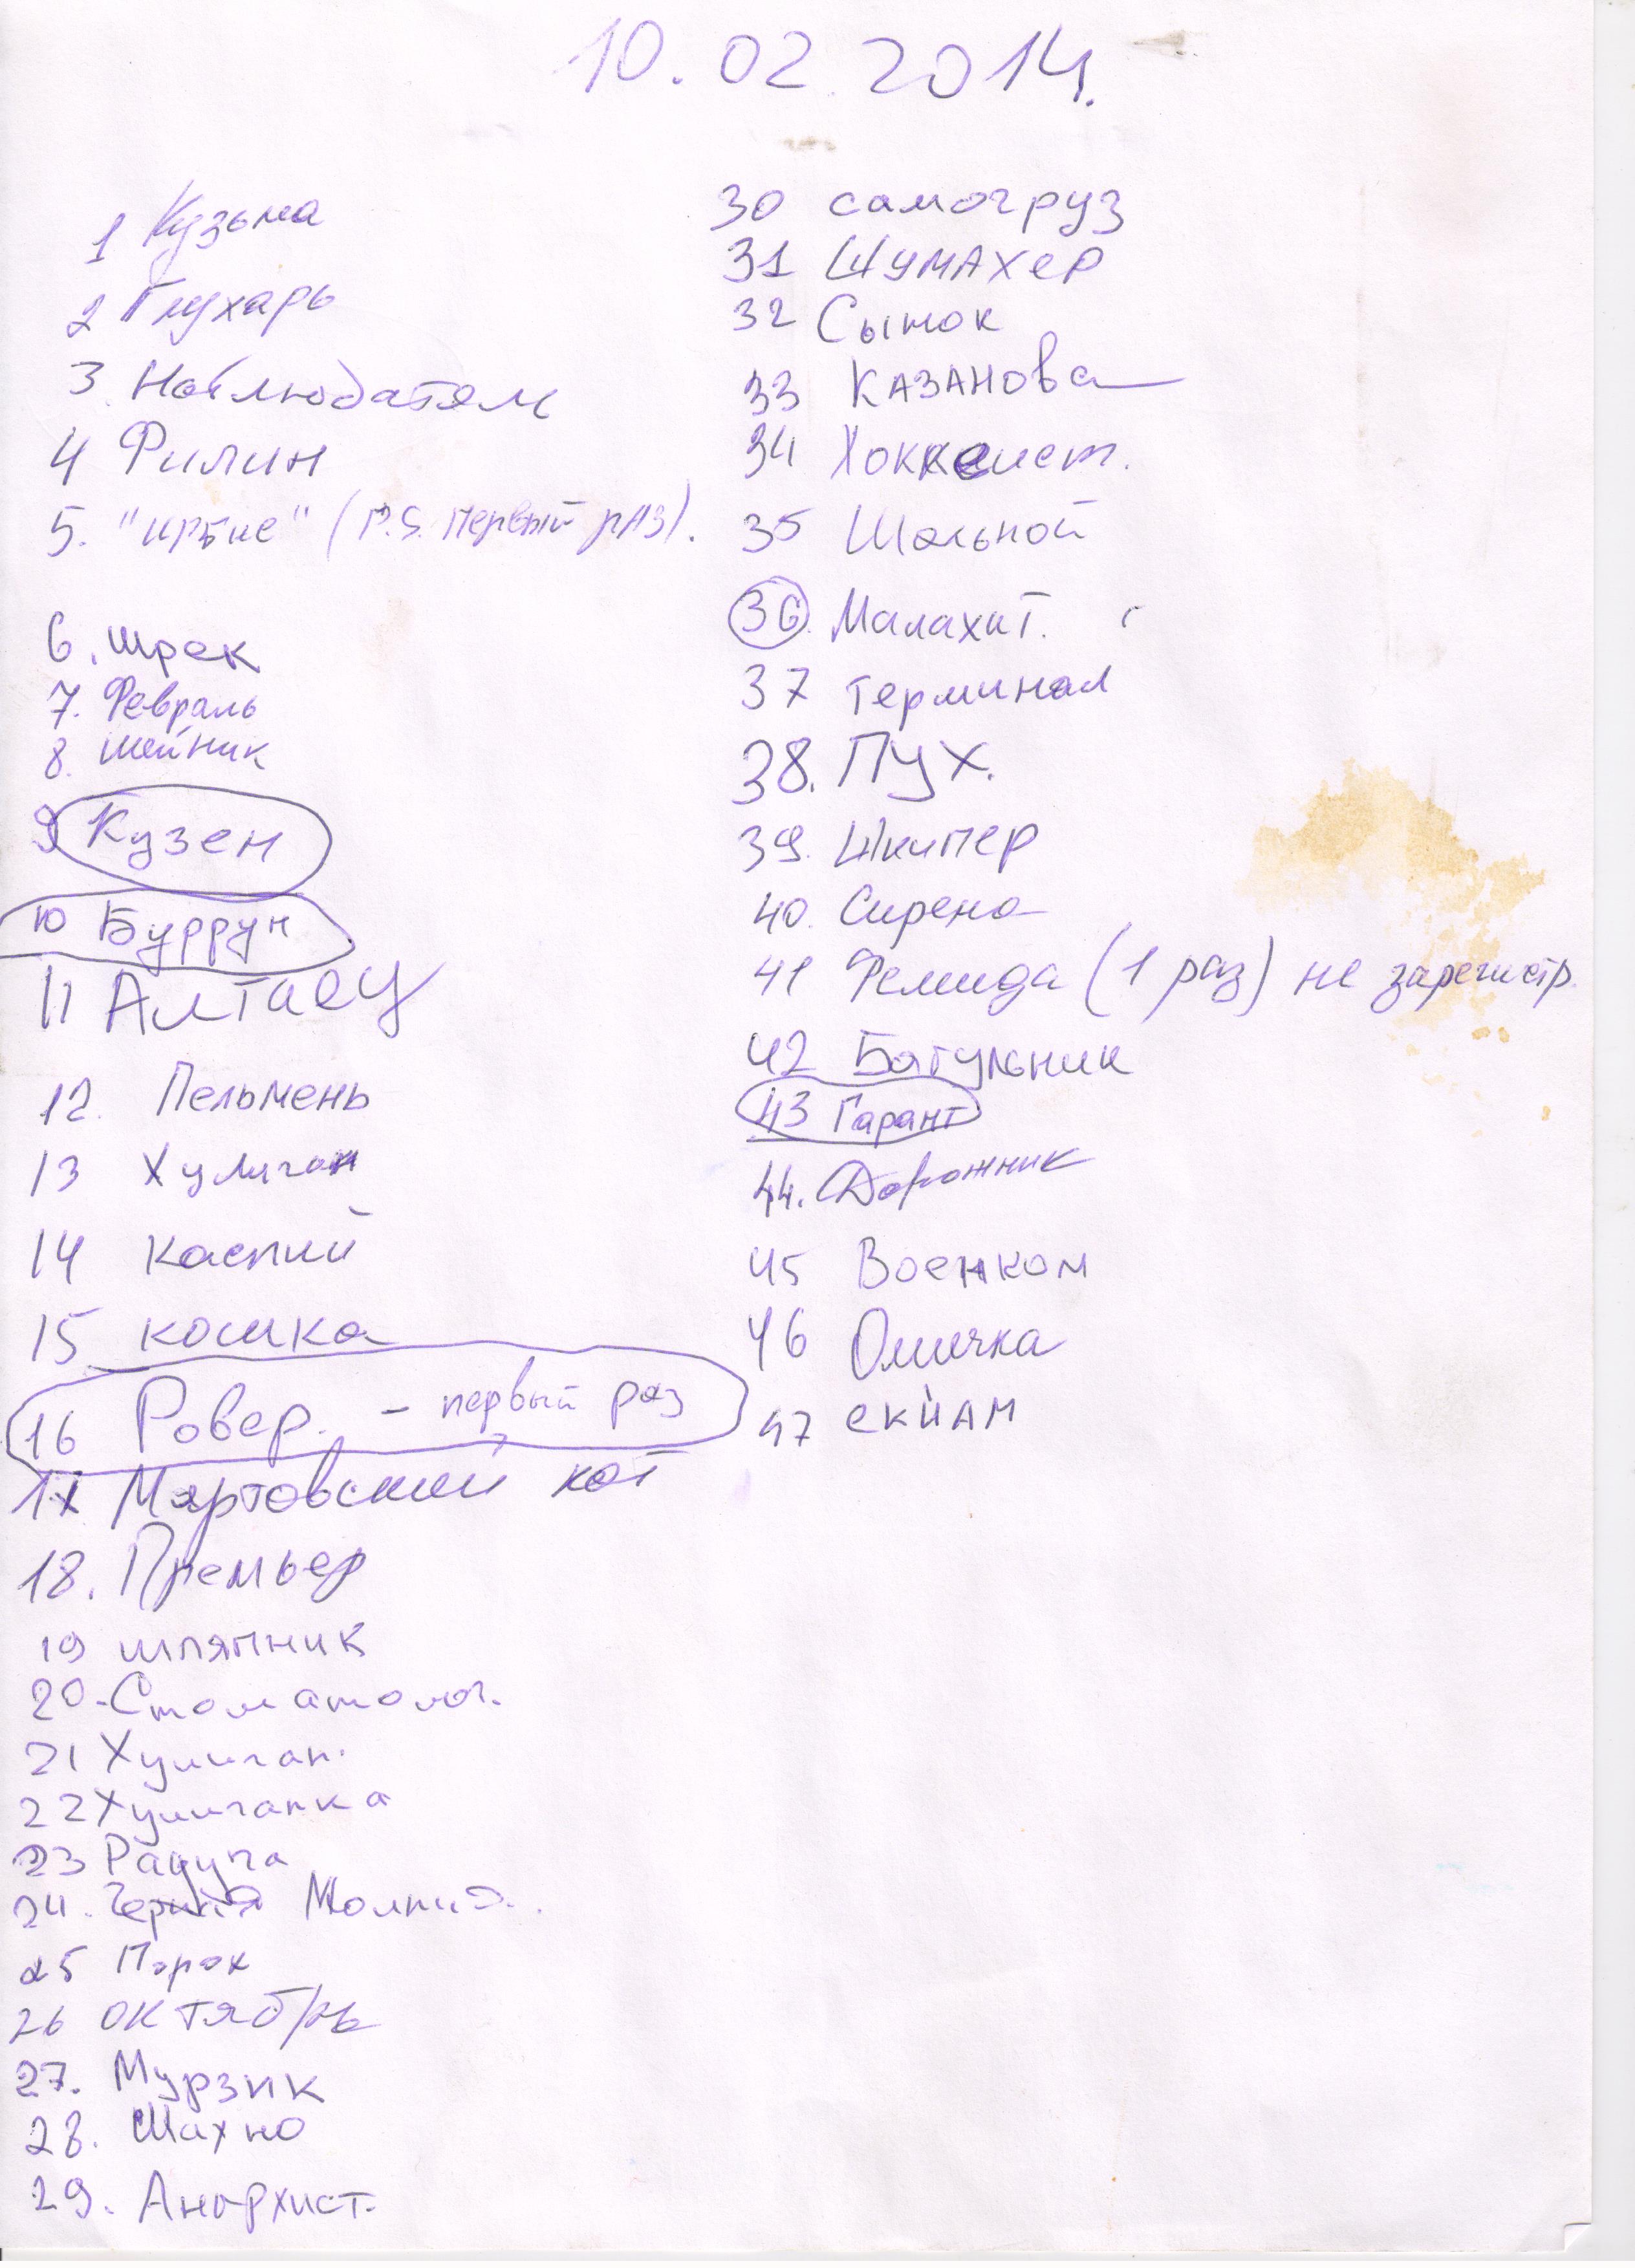 10.02.2014.
1 Кузьма
2 Глухарь
3. Наблюдатель
4 Филин
5. "ирбис" (P.S. Первый рАз).
6. Шрек
7. Февраль
8. Шейник
9 Кузен
10 Буррун
11 Алтаец
12. Пельмень
13 Хулиган
14 Каспий
15 кошка
16 Ровер. - первый раз
17 Мартовский кот
18. Премьер
19 шляпник
20. Стоматолог.
21 Хулиган.
22 Хулиганка
23 Радуга
24. Черная Молния.
25 Порох
26 октябрь
27. Мурзик
28. Махно
29. Анархист.
30 самогруз
31 ШУМАХЕР
32 Сынок
33 КАЗАНОва
34 Хоккеист.
35 Шальной
36. Малахит.
37 Терминал
38. ПУХ.
39. Шкипер
40. Сирена
41 Фемида (1 раз) не зарегистр.
42 Багульник
43 Гарант
44. Дорожник
45 Военком
46 Омичка
47